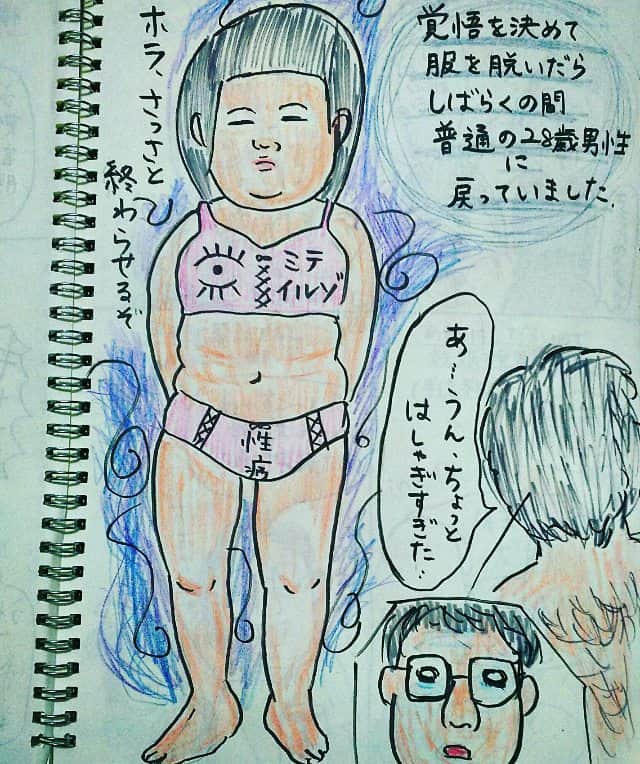 覚悟を決めて
服を脱いだら
しばらくの間
普通の28歳男性
に
戻っていました.
ホラ、さっさと
終わらせるぞ
ミテ
イルゾ
性
病
あ…うん、ちょっと
はしゃぎすぎた…